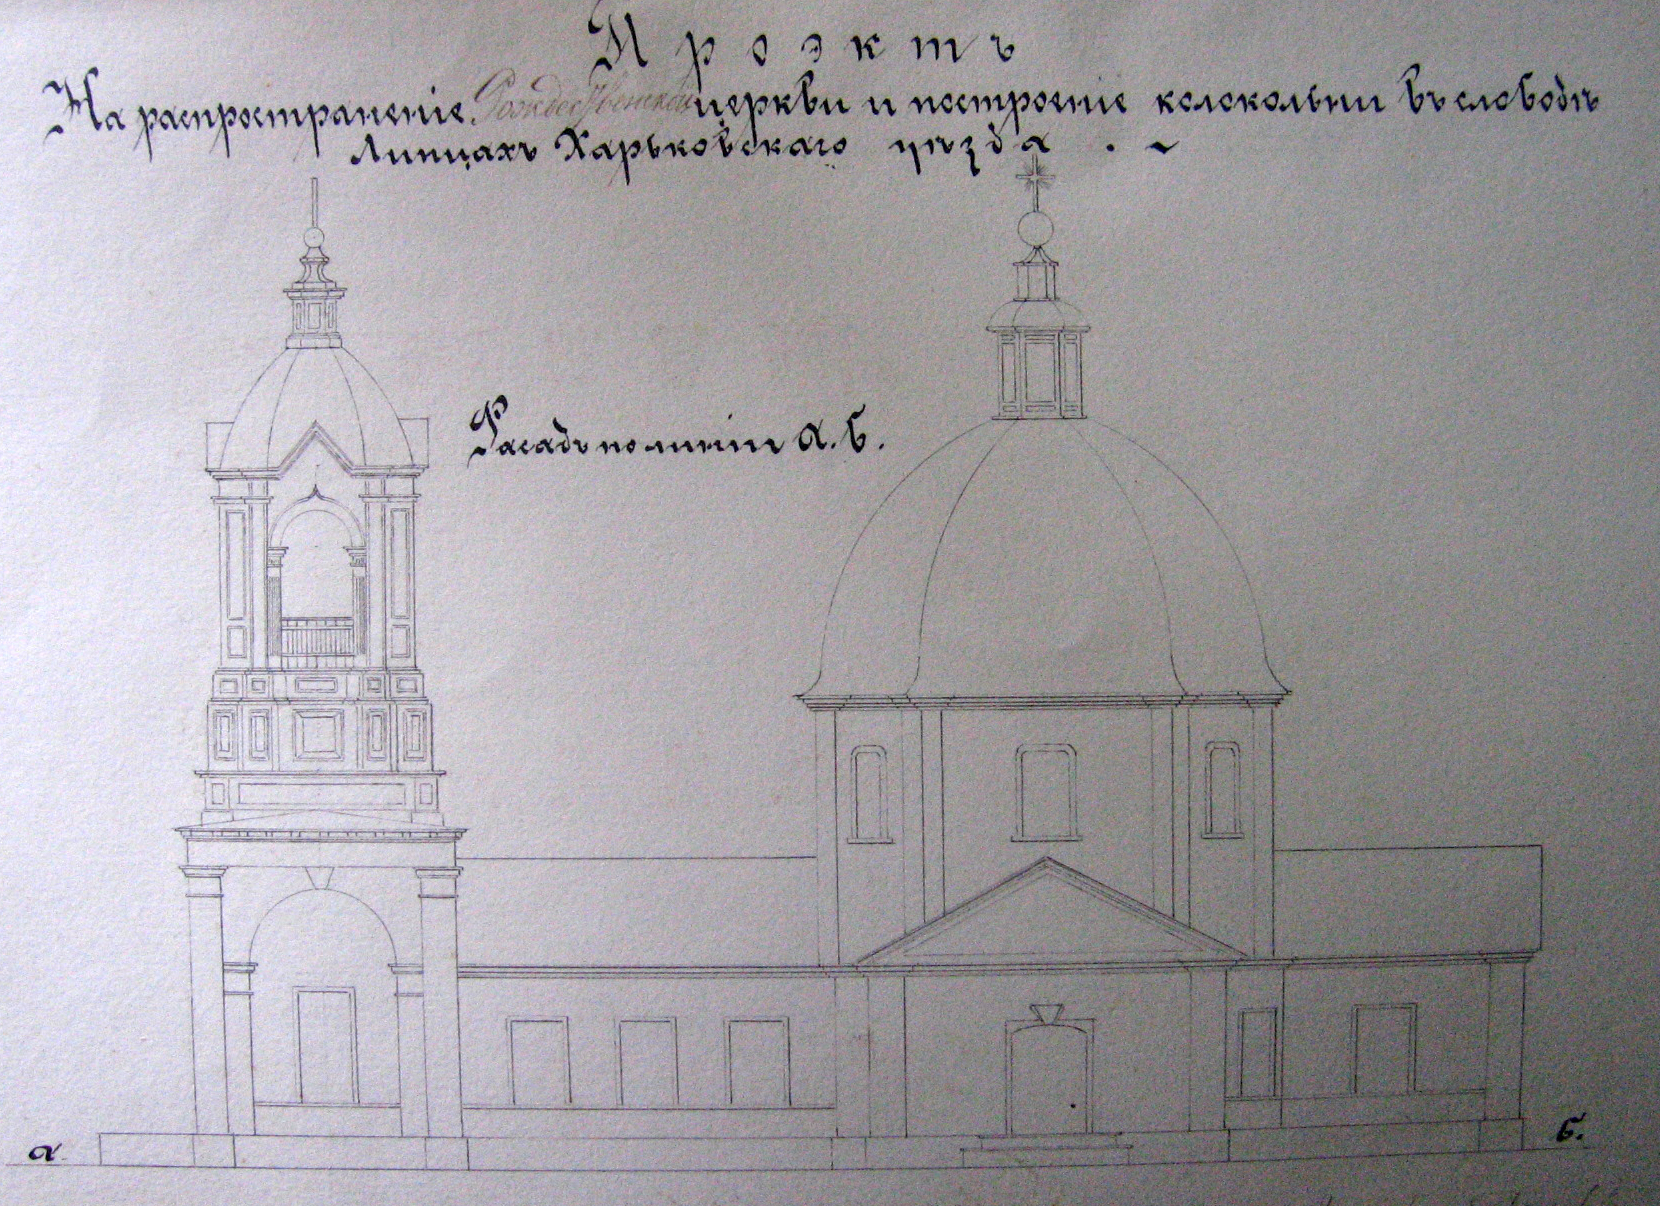 Проэктъ
На распространеніе Рождественской церкви и построеніе колокольни въ слободѣ
Липцахъ Харьковскаго уѣзда.
Фасадъ по линіи а. б.
а
б.